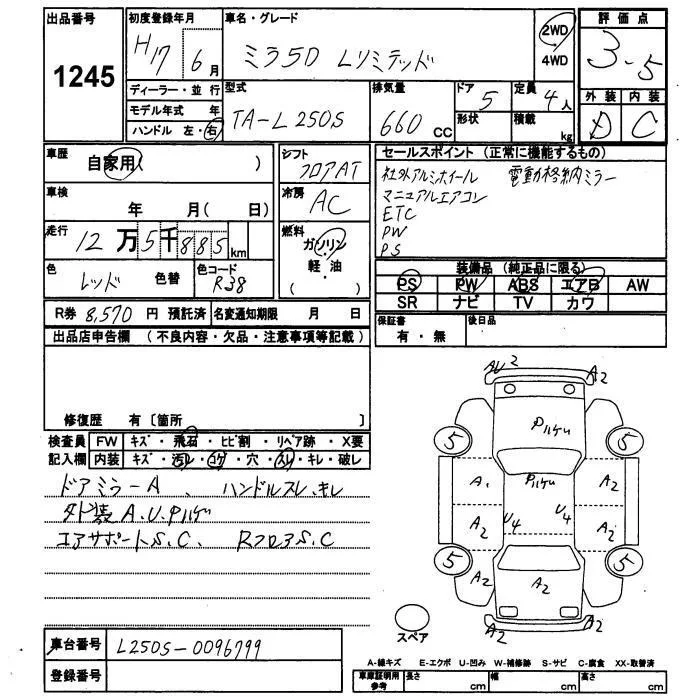 出品番号
1245
初度登録年月
H17 6月
ディーラー・並行
モデル年式 年
ハンドル 左・右
車名・グレード
ミラ5D Lリミテッド
2WD
4WD
型式
TA-L250S
排気量
660 CC
ドア 5
形状
定員 4人
積載 kg
評価点
3.5
外装 内装
D C
車歴
自家用( )
車検
年 月( 日)
走行
12万5千885km
色
レッド
色替
色コード
R38
シフト
フロアAT
冷房
AC
燃料
ガソリン
軽・油
( )
セールスポイント (正常に機能するもの)
社外アルミホイール 電動格納ミラー
マニュアルエアコン
ETC
PW
PS
装備品 (純正品に限る)
PS PW ABS エアB AW
SR ナビ TV カワ
保証書
有・無
後日品
R券 8,570 円 預託済 名変通知期限 月 日
出品店申告欄 (不良内容・欠品・注意事項等記載)
修復歴 有〔箇所 〕
検査員 FW キズ・飛石・ヒビ割・リペア跡・X要
記入欄 内装 キズ・汚レ・コゲ・穴・スレ・キレ・破レ
ドアミラーA 、 ハンドルスレ、キレ
外装 A.U.Pハゲ
エアサポートS.C、 RフロアS.C
AU2 A2
Pハゲ
5 5
A1 Pハゲ A2
A2 U4 U4 A2
5 5
A2 A2 A2
A2
スペア
車台番号 L250S-0096799
登録番号
A-線キズ E-エクボ U-凹み W-補修跡 S-サビ C-腐食 XX-取替済
車庫証明用
参考
長さ cm 幅 cm 高さ cm